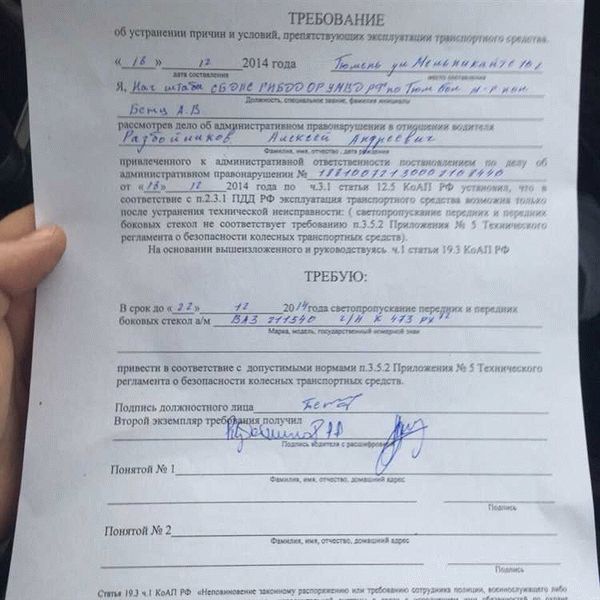 ТРЕБОВАНИЕ
об устранении причин и условий, препятствующих эксплуатации транспортного средства.
« 18 » 12 2014 года Тюмень ул Мельникайте
дата составления место составления
Я, Нач штаба СБ ДПС ГИБДД УМВД РФ по Тюм
Должность, специальное звание, фамилия инициалы
А.В.
рассмотрев дело об административном правонарушении в отношении водителя
Разбойников Алексей Андреевич
Фамилия, имя, отчество, дата рождения
привлеченного к административной ответственности постановлением по делу об
административном правонарушении №
от «18» 12 2014 года по ч.3.1 статьи 12.5 КоАП РФ установил, что в
соответствие с п.2.3.1 ПДД РФ эксплуатация транспортного средства возможна только
после устранения технической неисправности: ( светопропускание передних и передних
боковых стекол не соответствует требованию п.3.5.2 Приложения № 5 Технического
регламента о безопасности колесных транспортных средств).
На основании вышеизложенного и руководствуясь ч.1 статьи 19.3 КоАП РФ
ТРЕБУЮ:
В срок до « 22 » 12 2014 года светопропускание передних и передних
боковых стекол а/м ВАЗ 211540 г/н К 473
Марка, модель, государственный номерной знак
привести в соответствие с допустимыми нормами п.3.5.2 Приложения № 5 Технического
регламента о безопасности колесных транспортных средств.
Подпись должностного лица
Второй экземпляр требования получил
Подпись водителя с расшифровкой
Понятой № 1
Фамилия, имя, отчество, домашний адрес
Подпись
Понятой № 2
Фамилия, имя, отчество, домашний адрес
Подпись
Статья 19.3 ч.1 КоАП РФ «Неповиновение законному распоряжению или требованию сотрудника полиции, военнослужащего либо